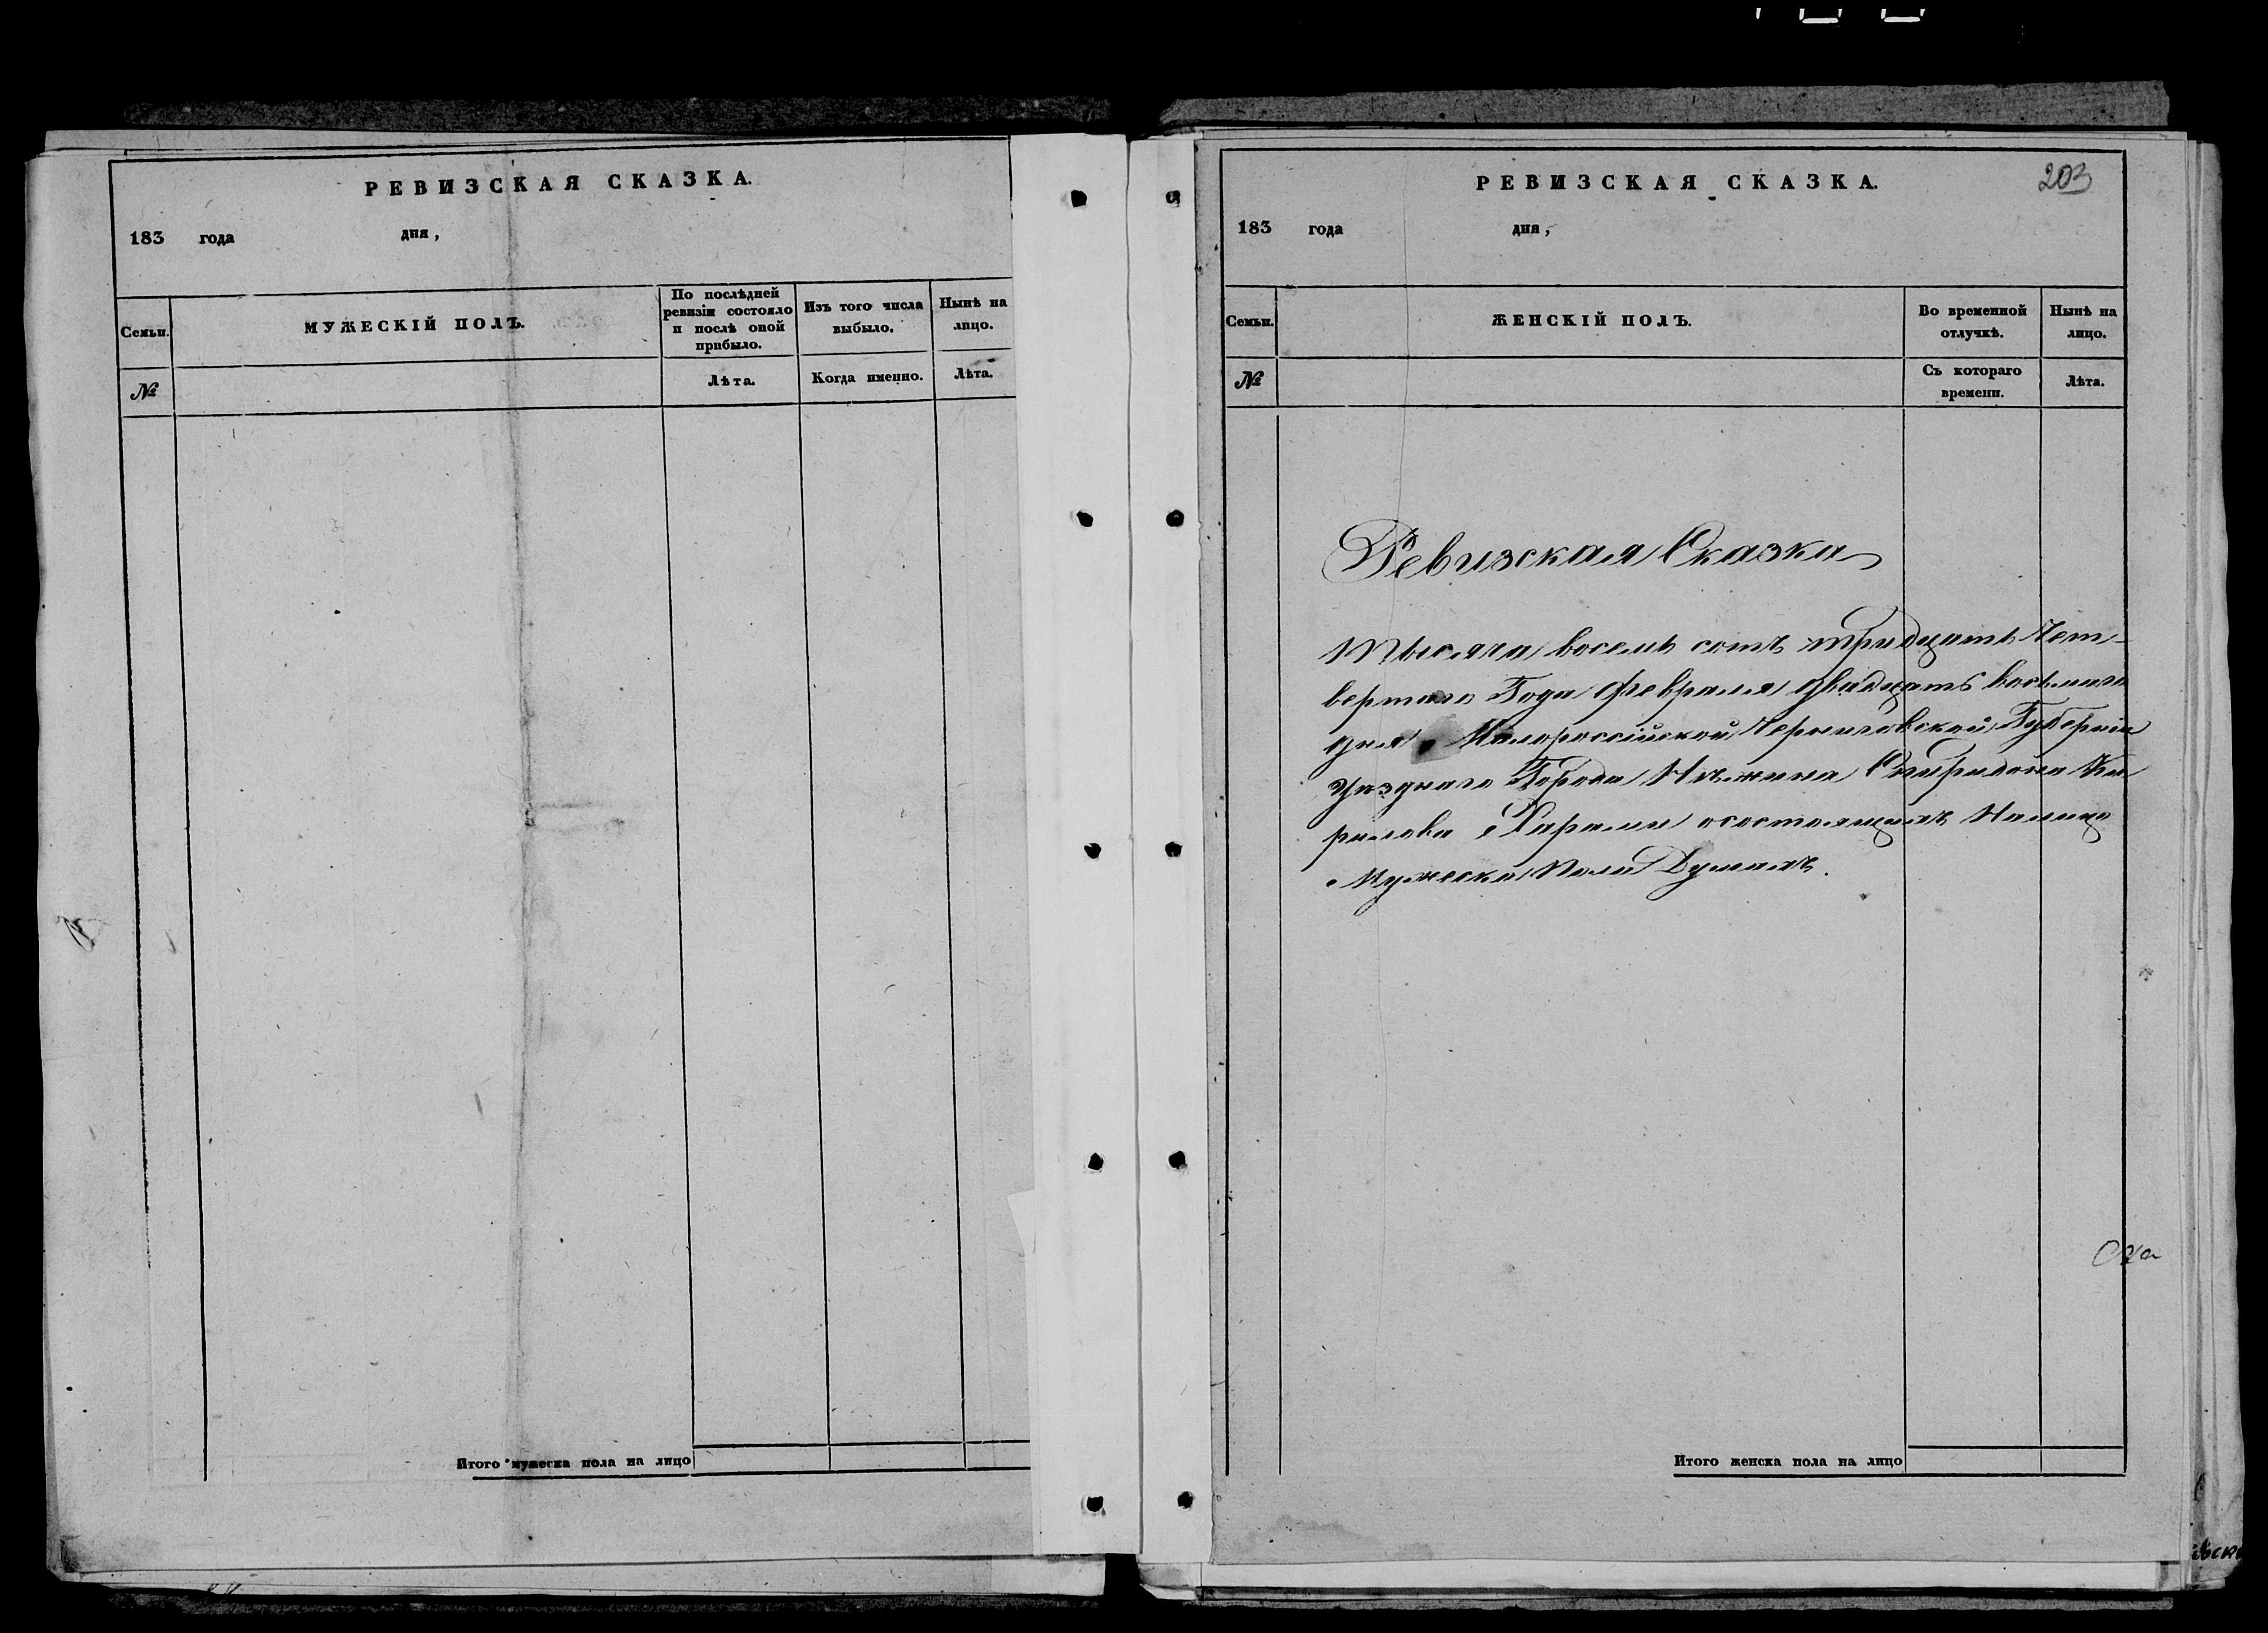 РЕВИЗСКАЯ СКАЗКА.
183 года дня,
Семьи.
МУЖЕСКІЙ ПОЛЪ.
По послѣдней
ревизіи состояло
и послѣ оной
прибыло.
Изъ того числа
выбыло.
Нынѣ на
лицо.
№
Лѣта.
Когда именно.
Лѣта.
Итого мужеска пола на лицо
РЕВИЗСКАЯ СКАЗКА.
203
183 года дня,
Семьи.
ЖЕНСКІЙ ПОЛЪ.
Во временной
отлучкѣ.
Нынѣ на
лицо.
№
Съ котораго
времени.
Лѣта.
Ревизская Сказка
Тысяча восемь сотъ тридцать Чет-
вертаго Года февраля двадцать восьмаго
дня Малороссійской Черниговской Губерніи
уезднаго Города Нежина Спиридона Ки
рилова осостоящихъ Налицо
Мужеска Пола Душахъ.
Ска
Итого женска пола на лицо